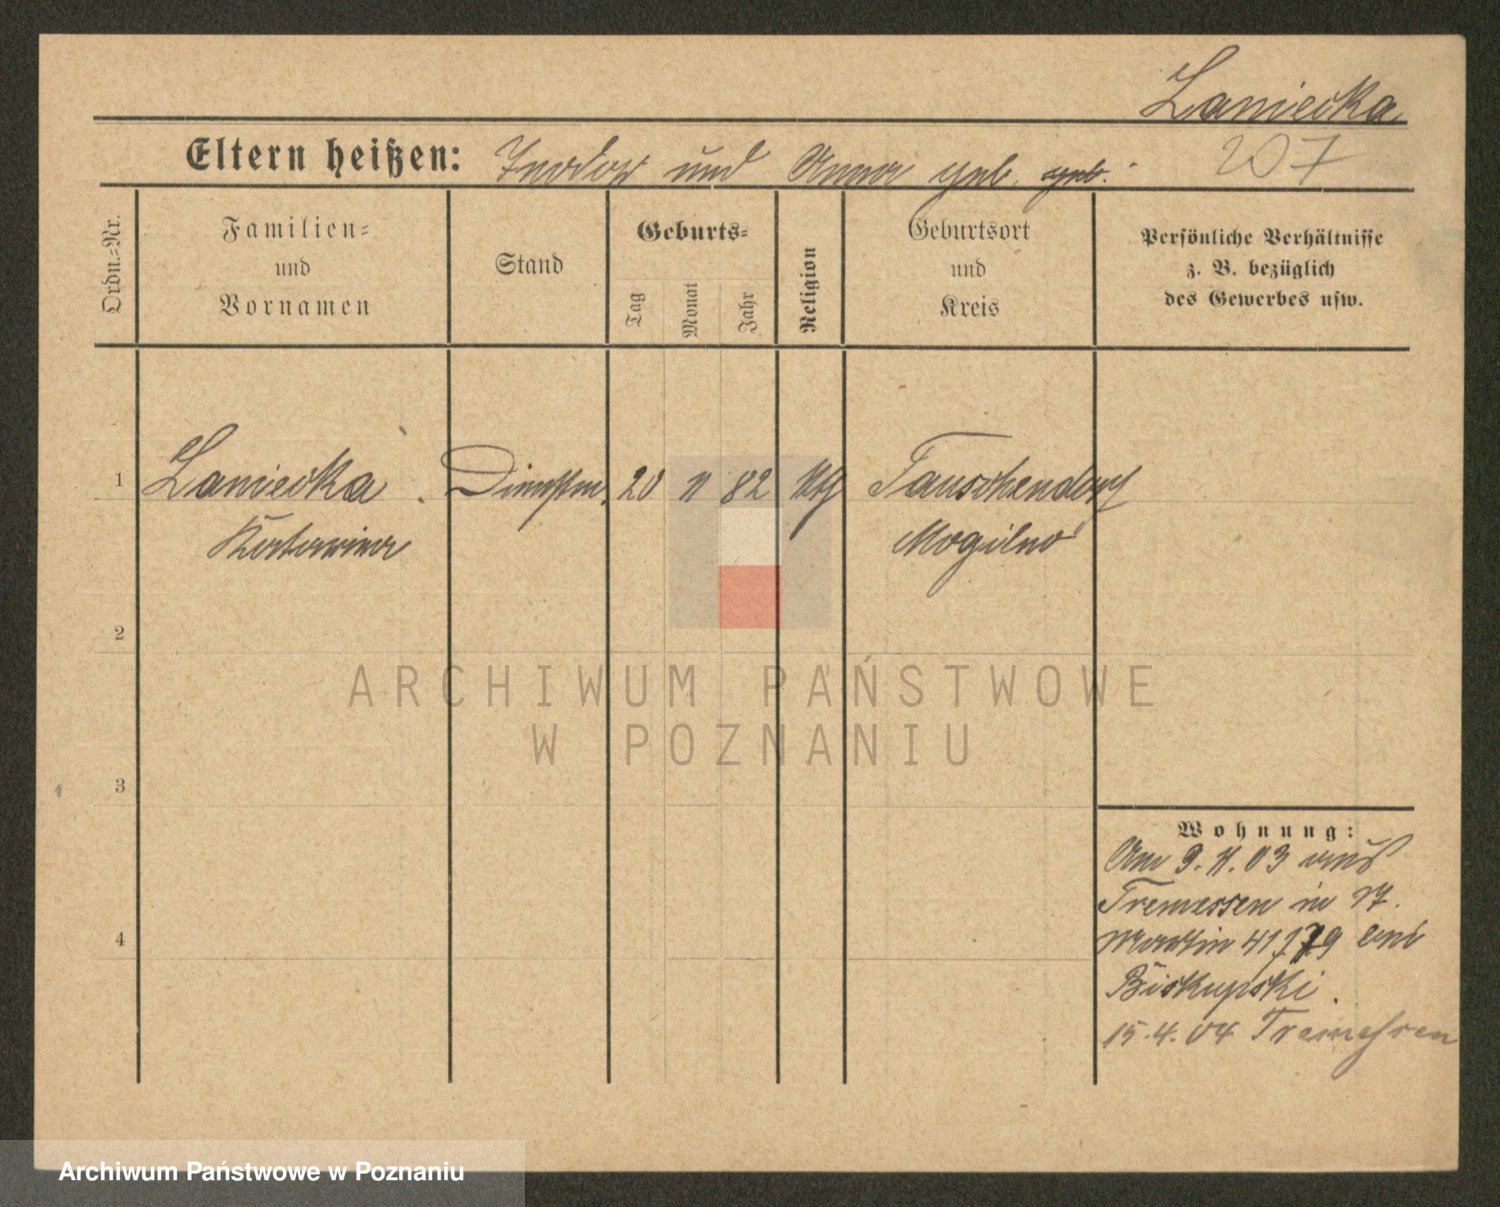 Laniecka
Eltern heißen: Teodor und Anna geb. geb.
207
Ordn.-Nr.
Familien-
und
Vornamen
Stand
Geburts-
Tag
Monat
Jahr
Religion
Geburtsort
und
Kreis
Persönliche Verhältnisse
z. B. bezüglich
des Gewerbes usw.
1 Laniecka Dienstm. 20 11 82 Ktg Tauschendorf
Katarina Mogilno
2
ARCHIWUM PAŃSTWOWE
W POZNANIU
3
Wohnung:
Am 9. 11. 03 aus
Tremessen in
4
Martin 41 bei
Biskupski.
15.4.04 Tremessen
Archiwum Państwowe w Poznaniu